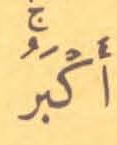 أَكْبَرُۚ